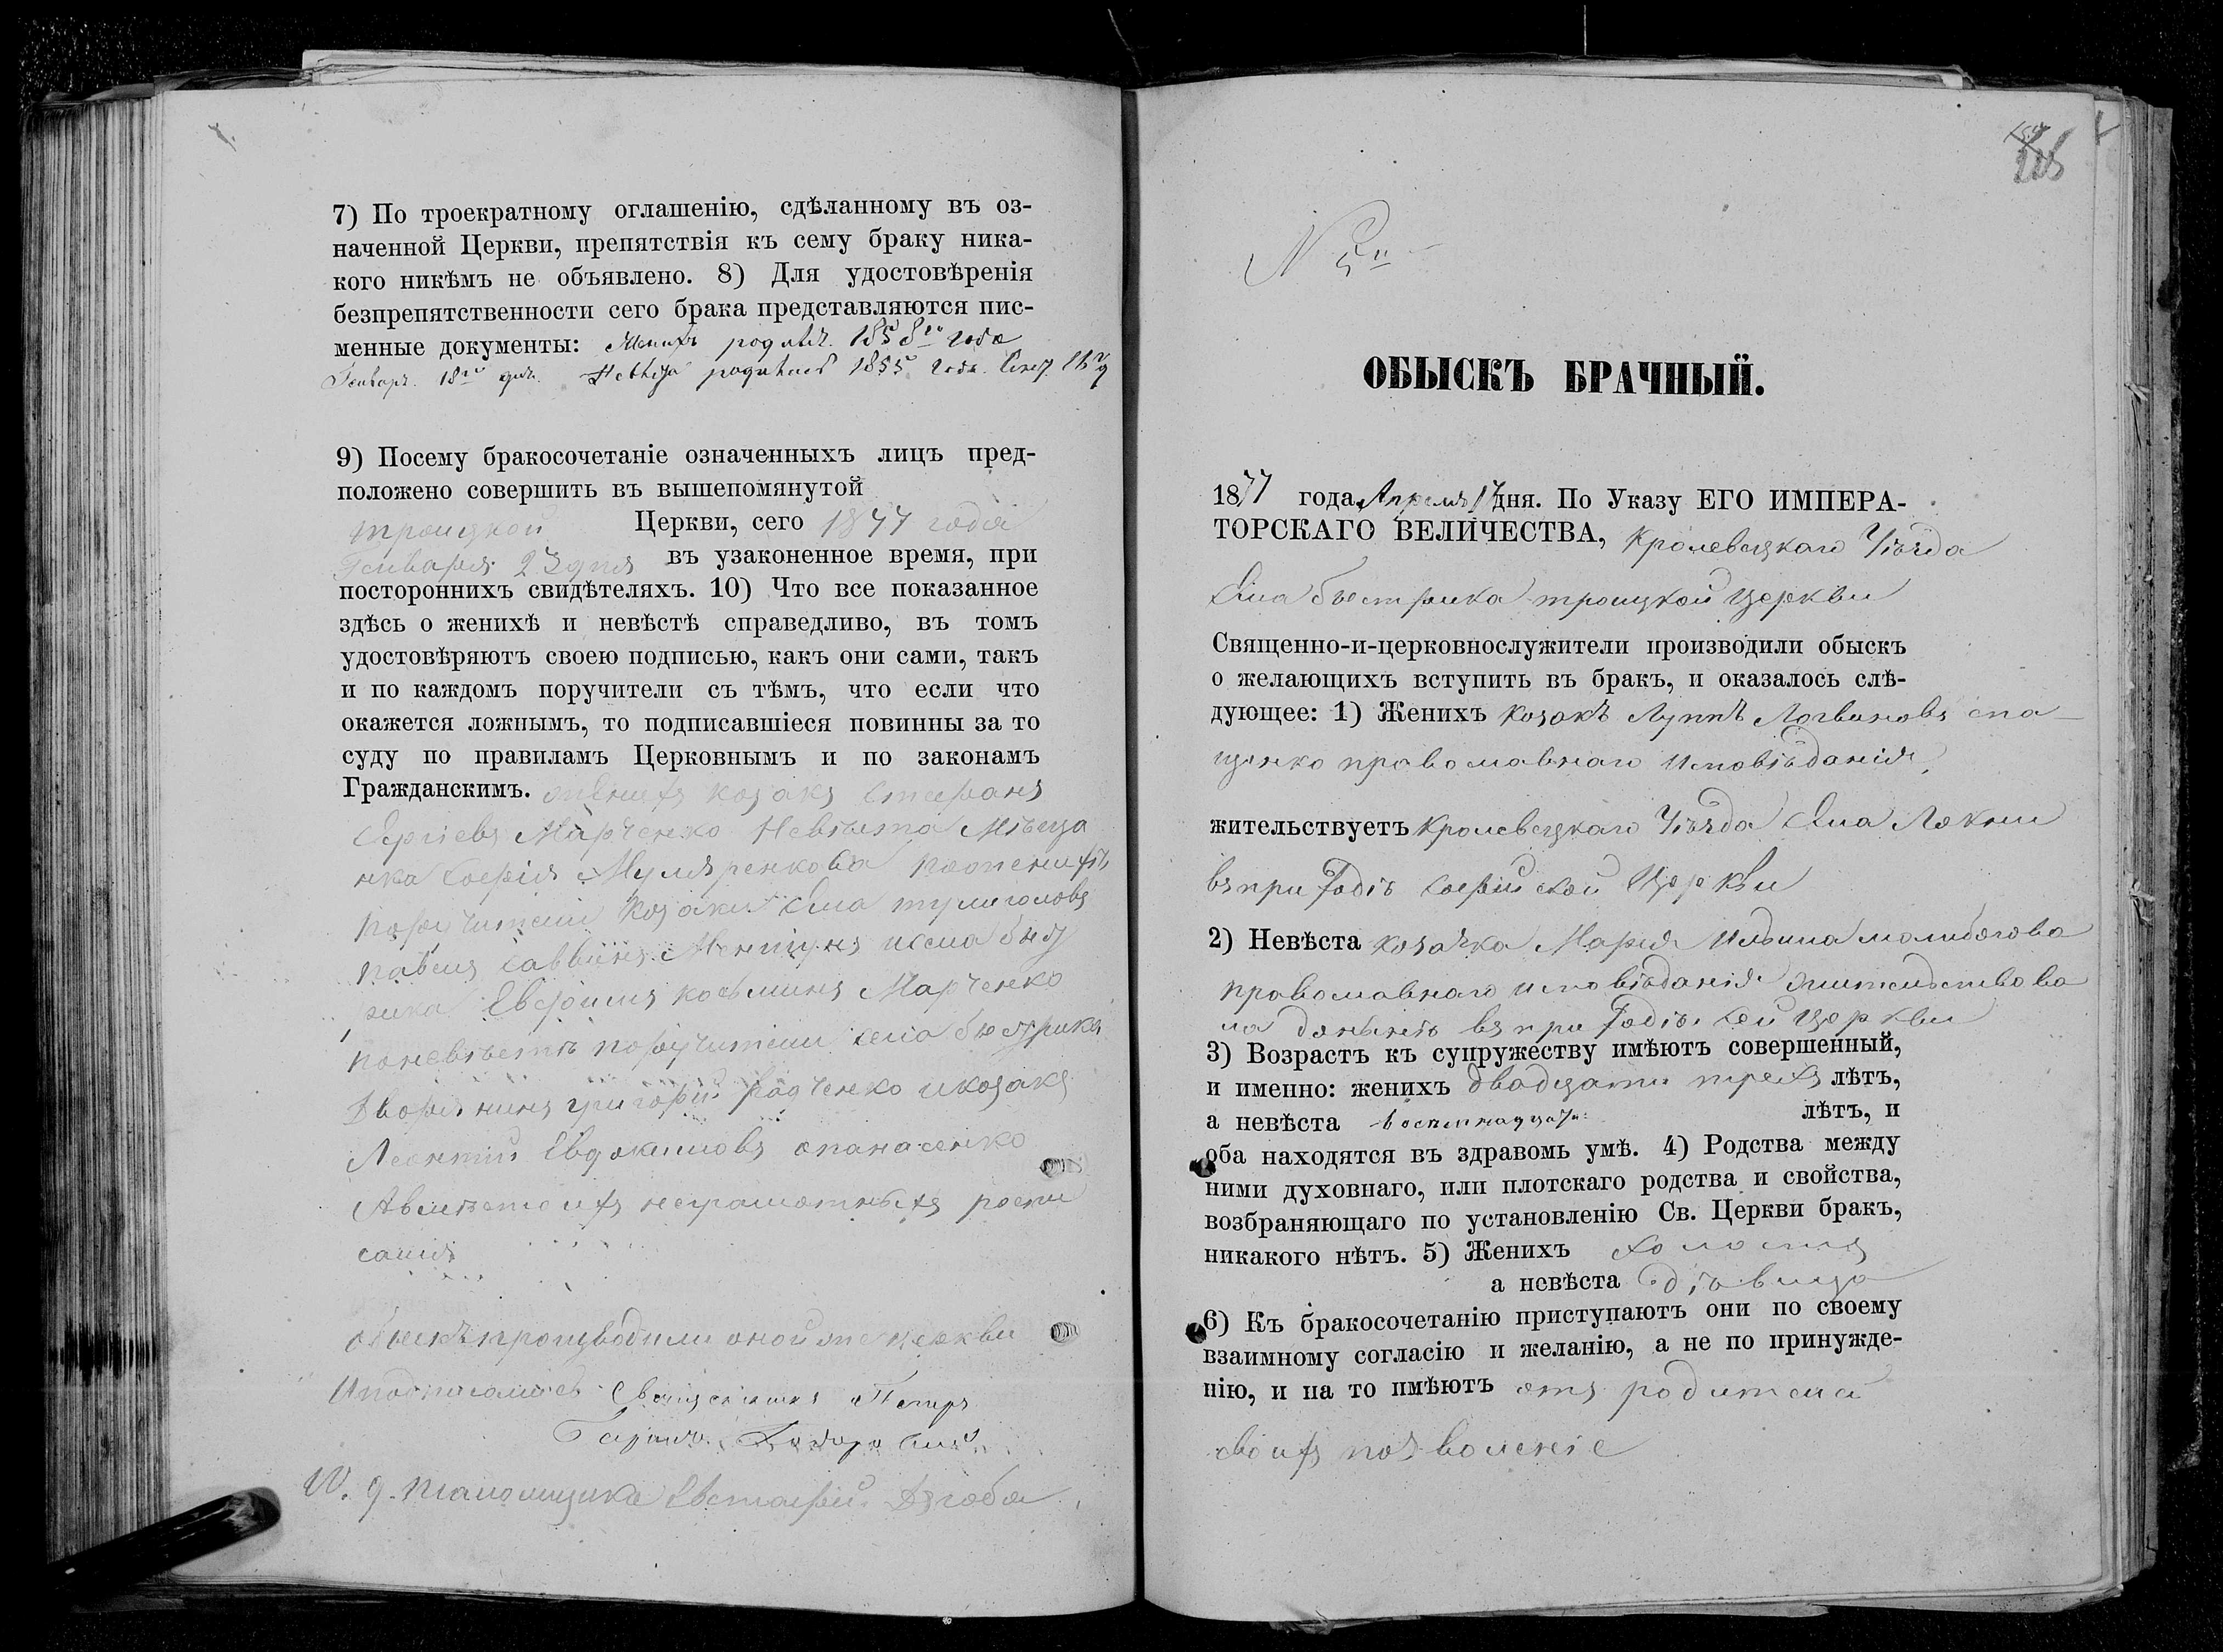 7) По троекратному оглашенію, сдѣланному въ оз-
наченной Церкви, препятствія къ сему браку ника-
кого никѣмъ не объявлено. 8) Для удостовѣренія
безпрепятственности сего брака представляются пис-
менные документы: Женихъ родилс. 1858го года
Генвар. 18го дня. Невѣста родилась 1855 года. Сент. 16
9) Посему бракосочетаніе означенныхъ лицъ пред-
положено совершить въ вышепомянутой
троицкой Церкви, сего 1877 года
Генваря 23 дня въ узаконенное время, при
постороннихъ свидѣтеляхъ. 10) Что все показанное
здѣсь о женихѣ и невѣстѣ справедливо, въ томъ
удостовѣряютъ своею подписью, какъ они сами, такъ
и по каждомъ поручители съ тѣмъ, что если что
окажется ложнымъ, то подписавшіеся повинны за то
суду по правиламъ Церковнымъ и по законамъ
Гражданскимъ. женихъ козакъ Стефанъ
Сергіевъ Марченко Невѣста Мѣща
нка Софія Мулярeнкова по женихѣ
поручители козаки села тулиголовъ
павелъ Саввинъ и села быст
рика Евфимъ косьминъ Марченко
по невѣстѣ поручители села быстрика
Дворянинъ григорій Радченко и козакъ
Леонтій Евдокимовъ опанасенко
А вмѣсто ихъ неграмотныхъ роспи
сался
обыскъ производили оной же церкви
И подписались Священникъ Петръ
И. д. псаломщика Евстафій Дзюба
225
N 5й
ОБЫСКЪ БРАЧНЫЙ.
1877 года, Апреля 17 дня. По Указу ЕГО ИМПЕРА-
ТОРСКАГО ВЕЛИЧЕСТВА, Кролевецкаго Уѣзда
Села быстрика троицкой Церкви
Священно-и-церковнослужители производили обыскъ
о желающихъ вступить въ бракъ, и оказалось слѣ-
дующее: 1) Женихъ козакъ Луппъ Логвиновъ спа-
щенко православнаго исповѣданія,
жительствуетъ Кролевецкаго Уѣзда Села Локни
въ приходѣ софійской Церкви
2) Невѣста козачка Марія Ильина молибогова
православнаго исповѣданія жительствова
ла донынѣ въ приходѣ сей Церкви
3) Возрастъ къ супружеству имѣютъ совершенный,
и именно: женихъ двадцати трехъ лѣтъ,
а невѣста восемнадцати лѣтъ, и
оба находятся въ здравомь умѣ. 4) Родства между
ними духовнаго, или плотскаго родства и свойства,
возбраняющаго по установленію Св. Церкви бракъ,
никакого нѣтъ. 5) Женихъ холостъ
а невѣста дѣвица
6) Къ бракосочетанію приступаютъ они по своему
взаимному согласію и желанію, а не по принужде-
нію, и на то имѣютъ отъ родителей
своихъ позволеніе